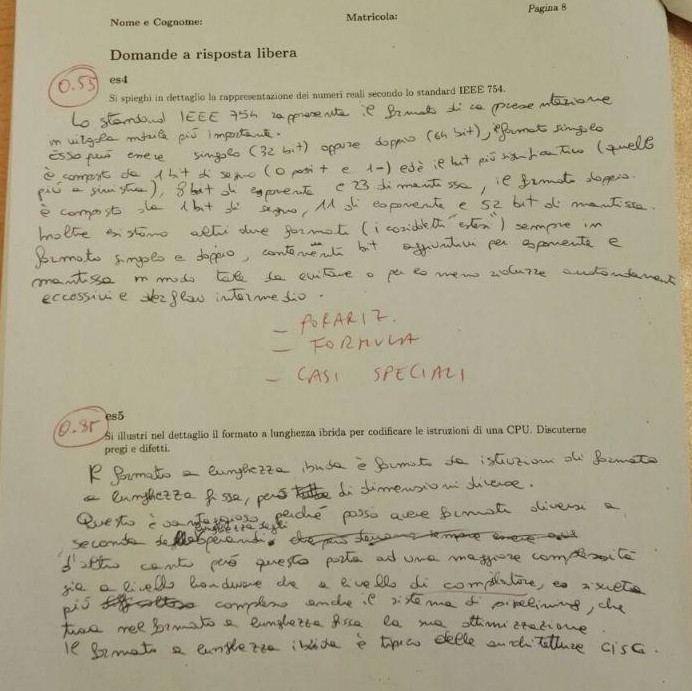 Pagina 8
Nome e Cognome: Matricola:
Domande a risposta libera
0.55
es4
Si spieghi in dettaglio la rappresentazione dei numeri reali secondo lo standard IEEE 754.
Lo standard IEEE 754 rappresenta il formato di rappresentazione
in virgola mobile più importante.
Esso può essere singolo (32 bit) oppure doppio (64 bit), il formato singolo
è composto da 1 bit di segno (0 posit + e 1 -) ed è il bit più significativo (quello
più a sinistra), 8 bit di esponente e 23 di mantissa, il formato doppio
è composto da 1 bit di segno, 11 di esponente e 52 bit di mantissa.
Inoltre esistono altri due formati (i cosiddetti "estesi") sempre in
formato singolo e doppio, contenenti bit aggiuntivi per esponente e
mantissa in modo tale da evitare o per lo meno ridurre arrotondamenti
eccessivi e overflow intermedio.
- POLARIZ.
- FORMULA
- CASI SPECIALI
0.85
es5
Si illustri nel dettaglio il formato a lunghezza ibrida per codificare le istruzioni di una CPU. Discuterne
pregi e difetti.
Il formato a lunghezza ibrida è formato da istruzioni di formato
a lunghezza fissa, però di dimensioni diverse.
Questo è vantaggioso perché posso avere formati diversi a
seconda della lunghezza degli operandi.
d'altro canto però questo porta ad una maggiore complessità
sia a livello hardware che a livello di compilatore, e risulta
più complesso anche il sistema di pipelining, che
trova nel formato a lunghezza fissa la sua ottimizzazione.
Il formato a lunghezza ibrida è tipico delle architetture CISC.